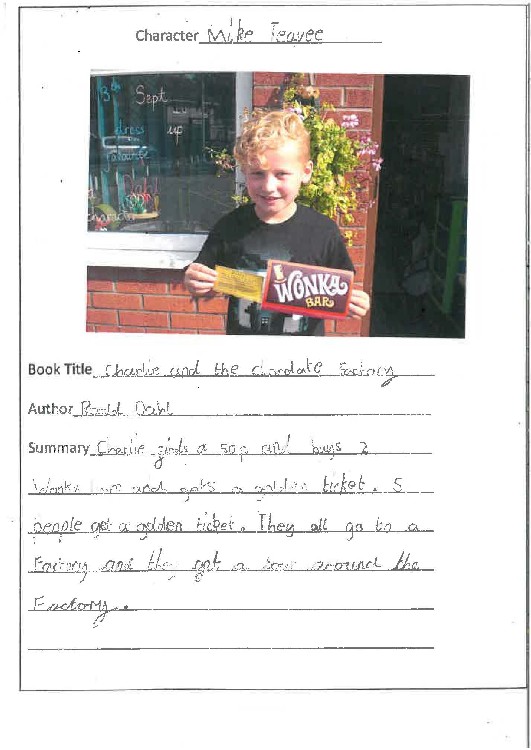 Character Mike Teavee
13th Sept
dress up
favourite
WONKA
BAR
Book Title Charlie and the choclate Factory
Author Roald Dahl
Summary Charlie finds a 50p and buys 2
Wonka bars and gets a golden ticket. 5
people get a golden ticket. They all go to a
Factory and they get a tour around the
Factory.